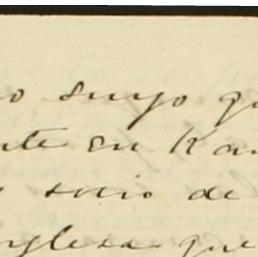 o suyo qu
nte en Kan
socio de
nglesa que